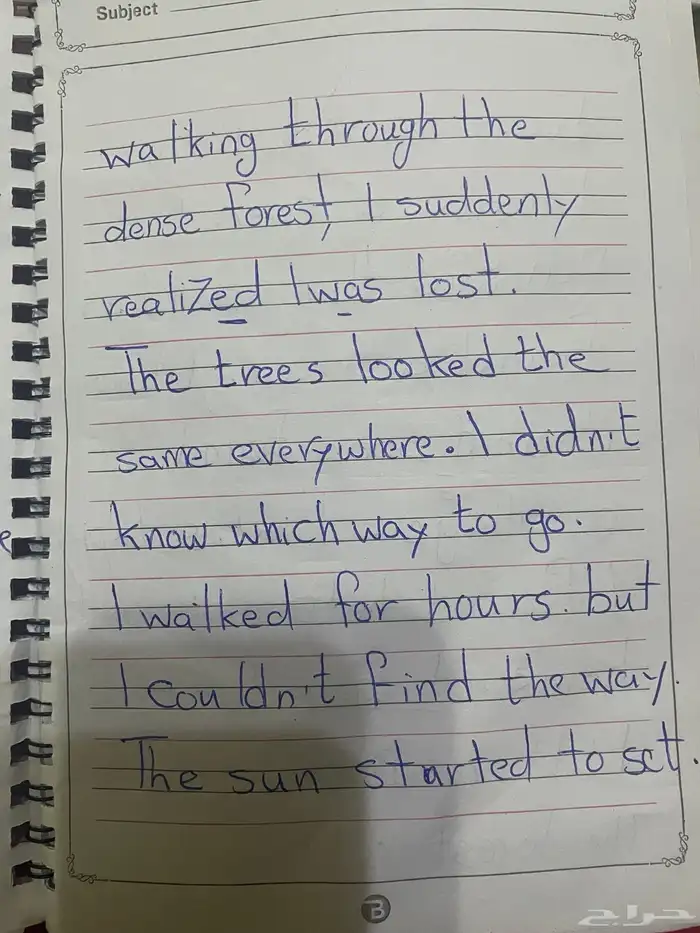 Subject
walking through the
dense forest, I suddenly
realized I was lost.
The trees looked the
same everywhere. I didn't
know which way to go.
I walked for hours. but
I couldn't find the way.
The sun started to set.
B
حراج